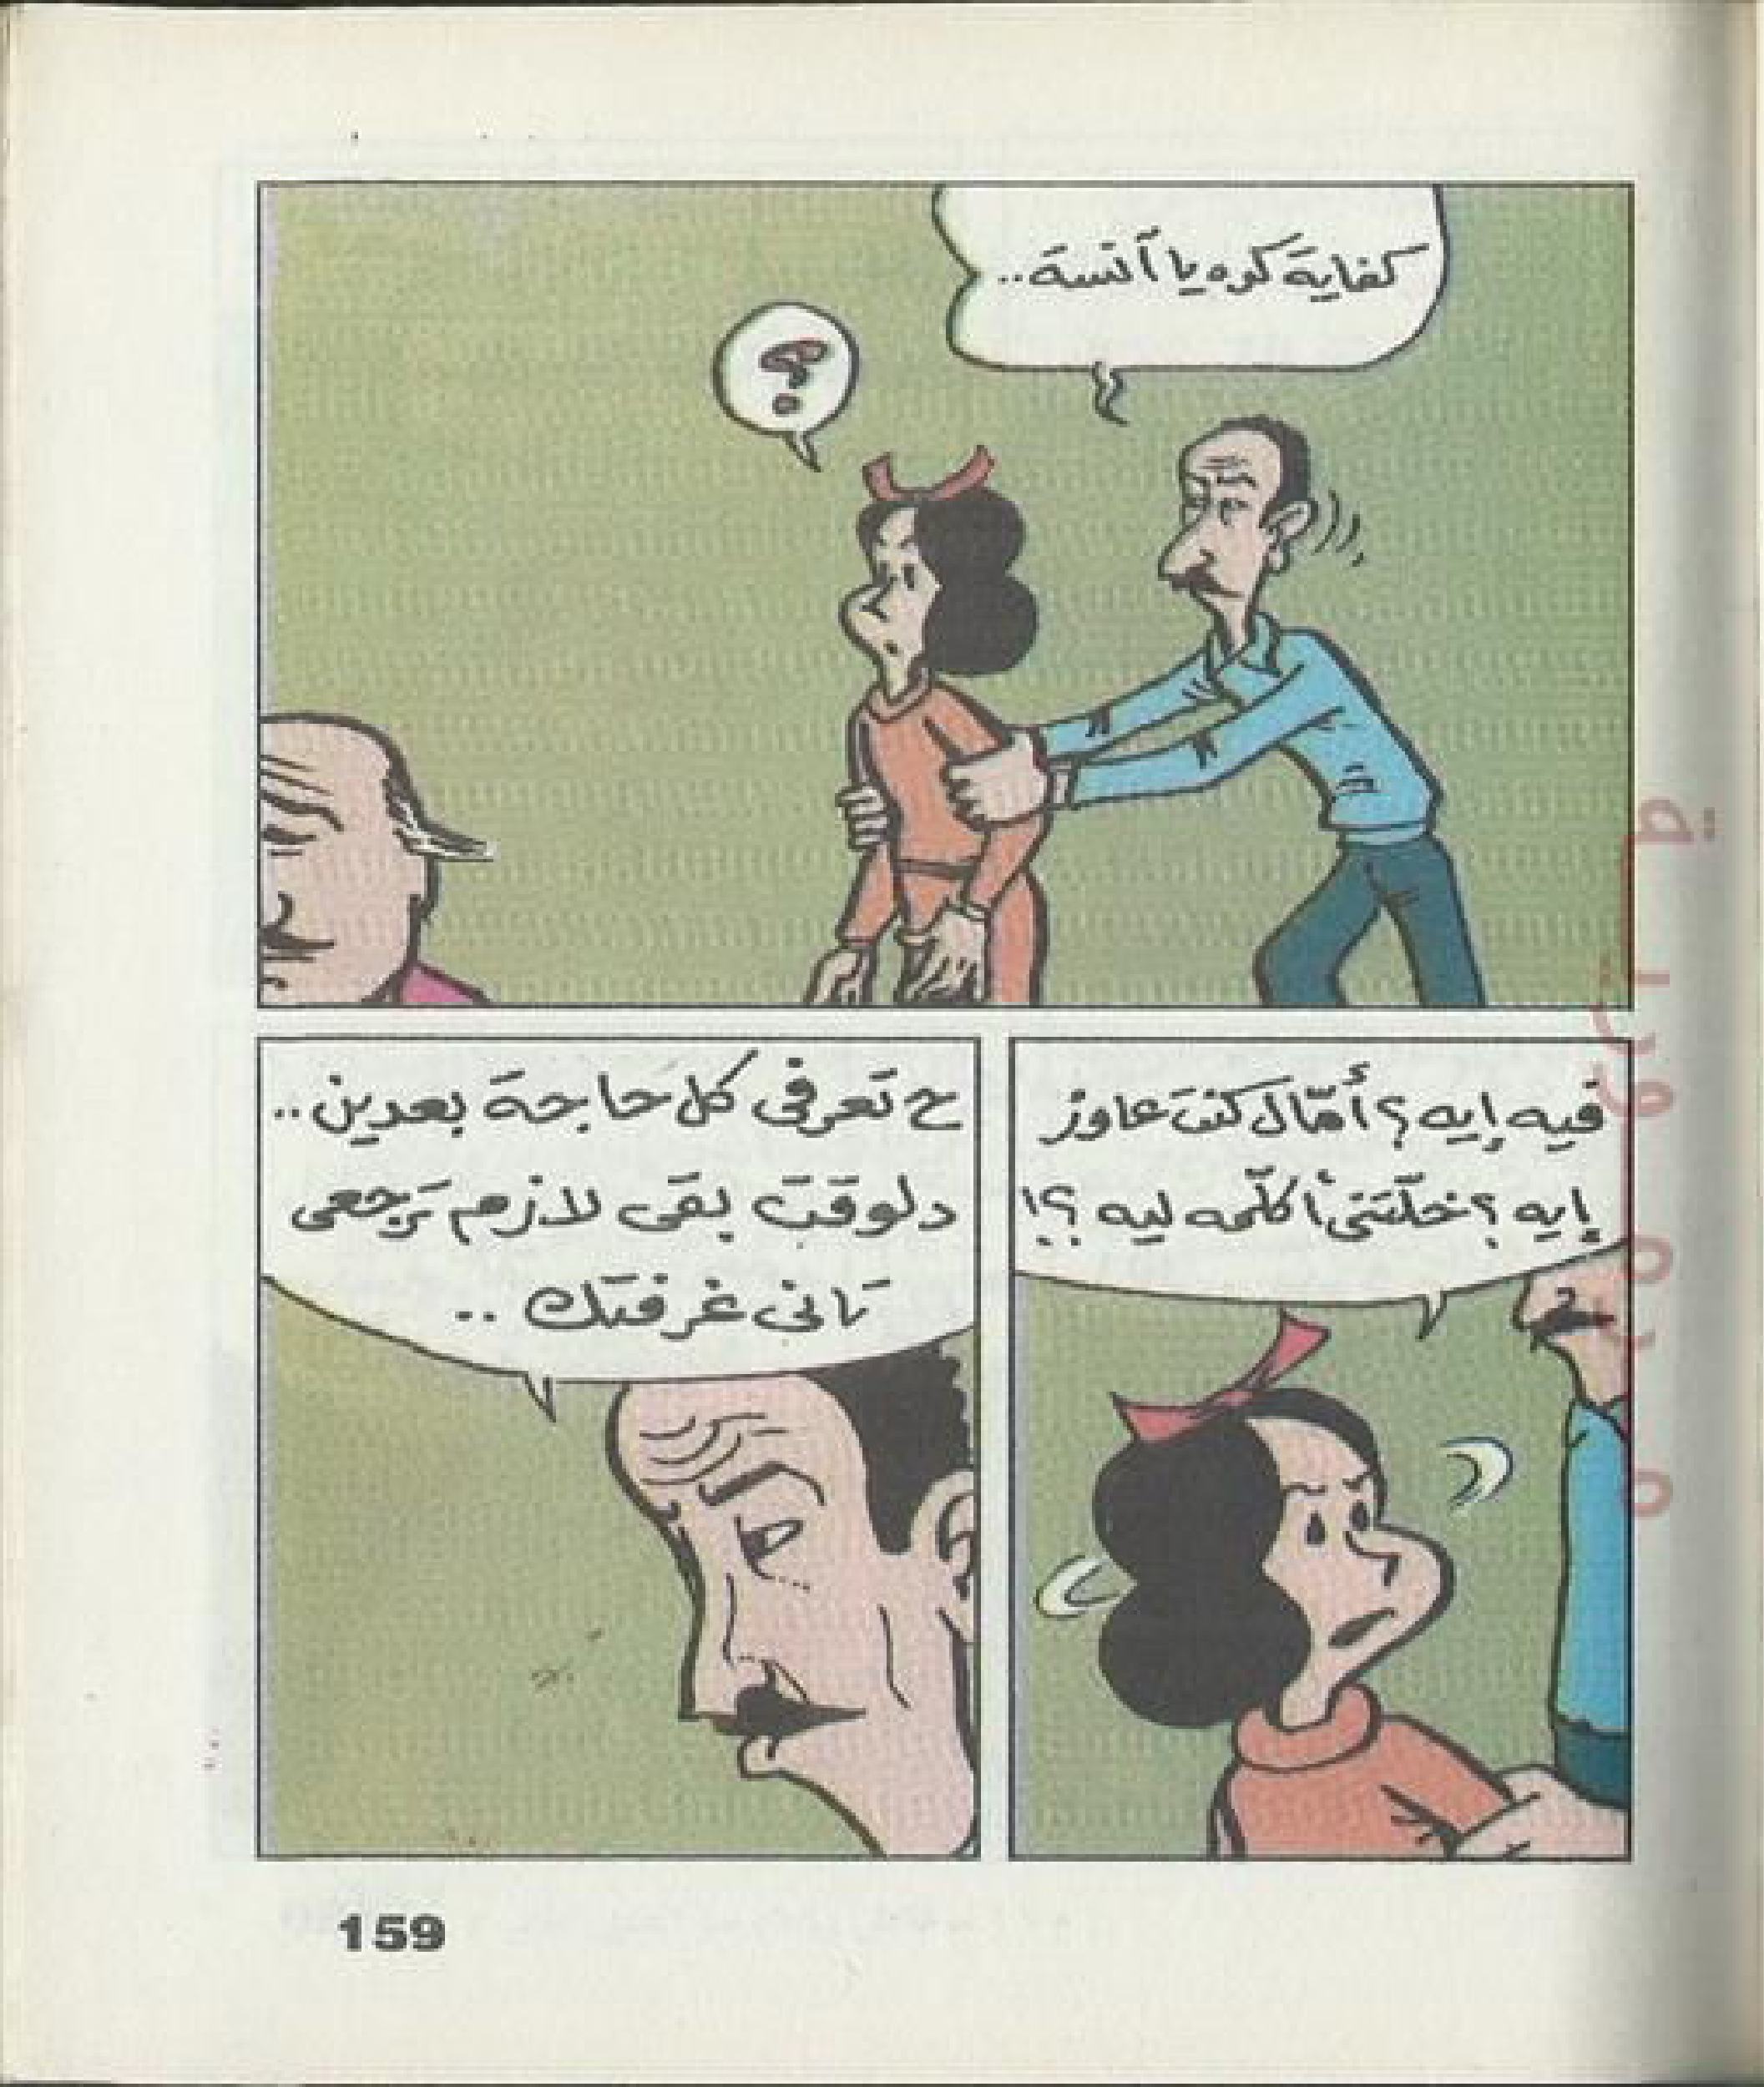 كفاية كده يا آنسة..
؟
فيه إيه؟ أمّال كنت عاوز
إيه؟ خلّتني أكلّمه ليه؟!
ح تعرفى كل حاجة بعدين..
دلوقت بقى لازم ترجعى
تانى غرفتك..
159